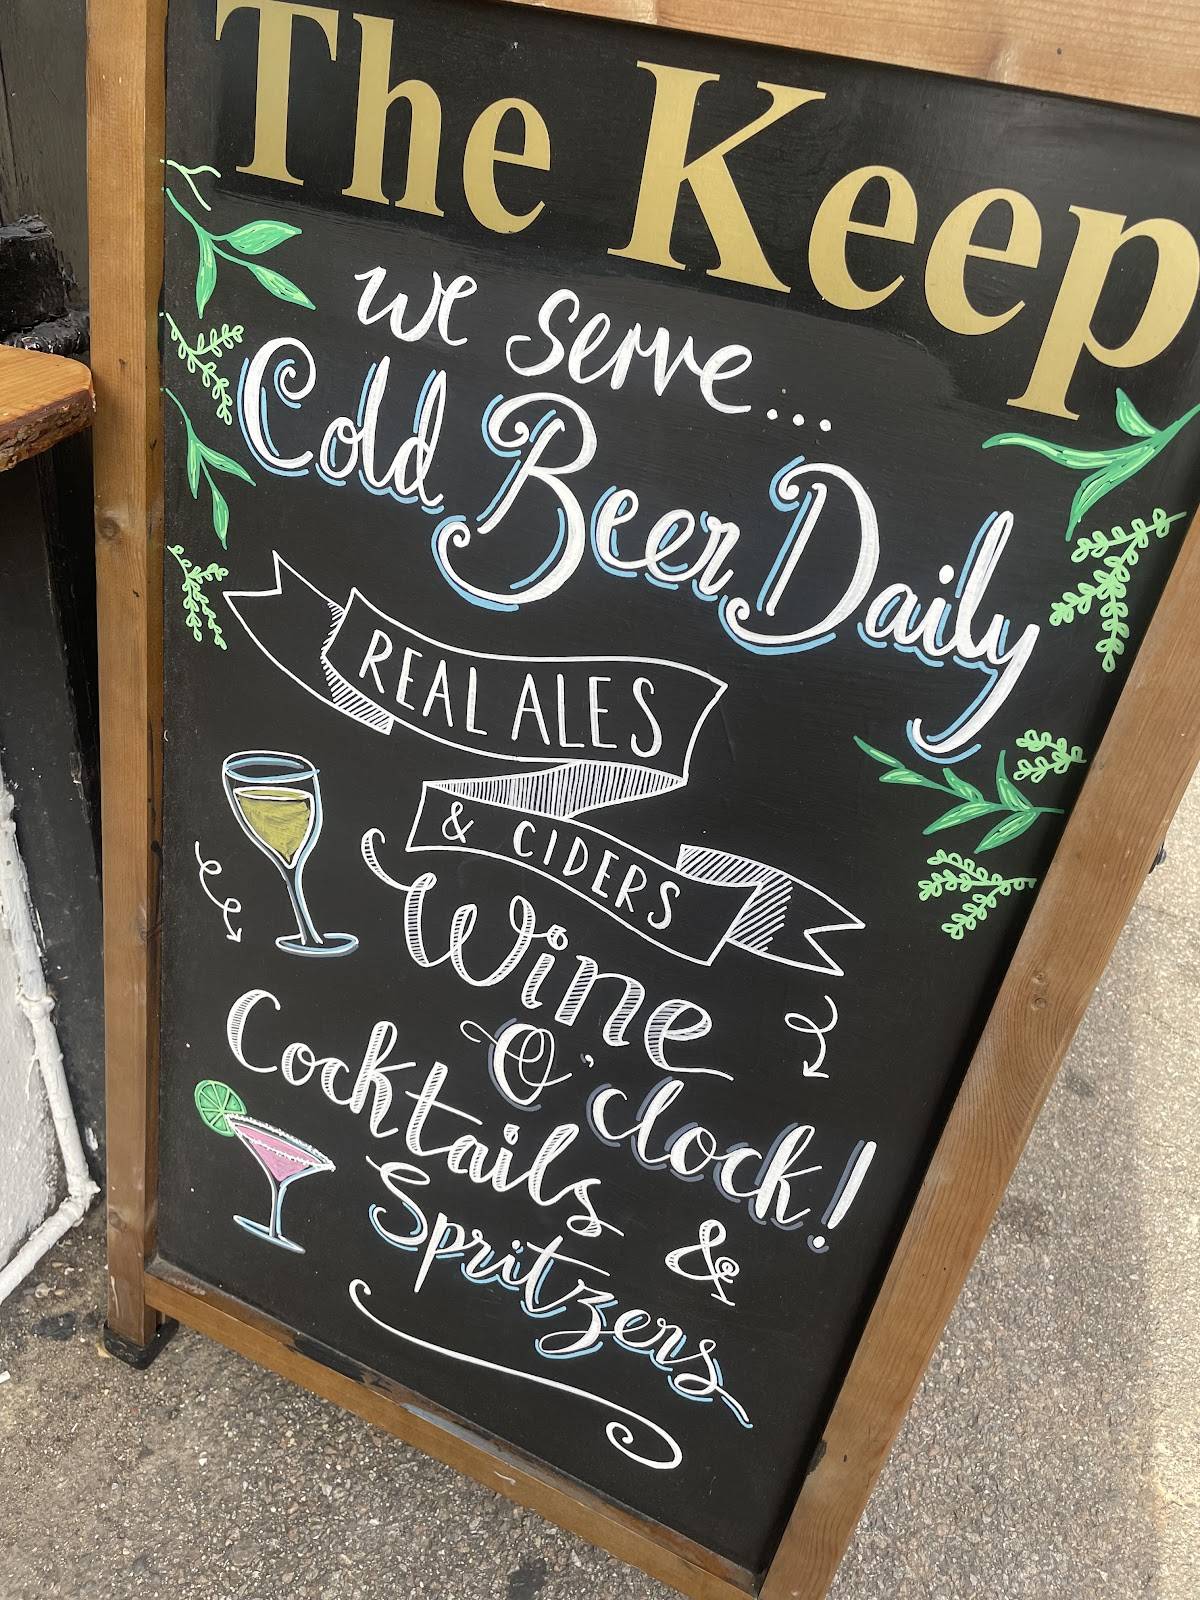 The Keep
we serve...
Cold Beer Daily
REAL ALES
& CIDERS
Wine
O'clock!
Cocktails &
Spritzers